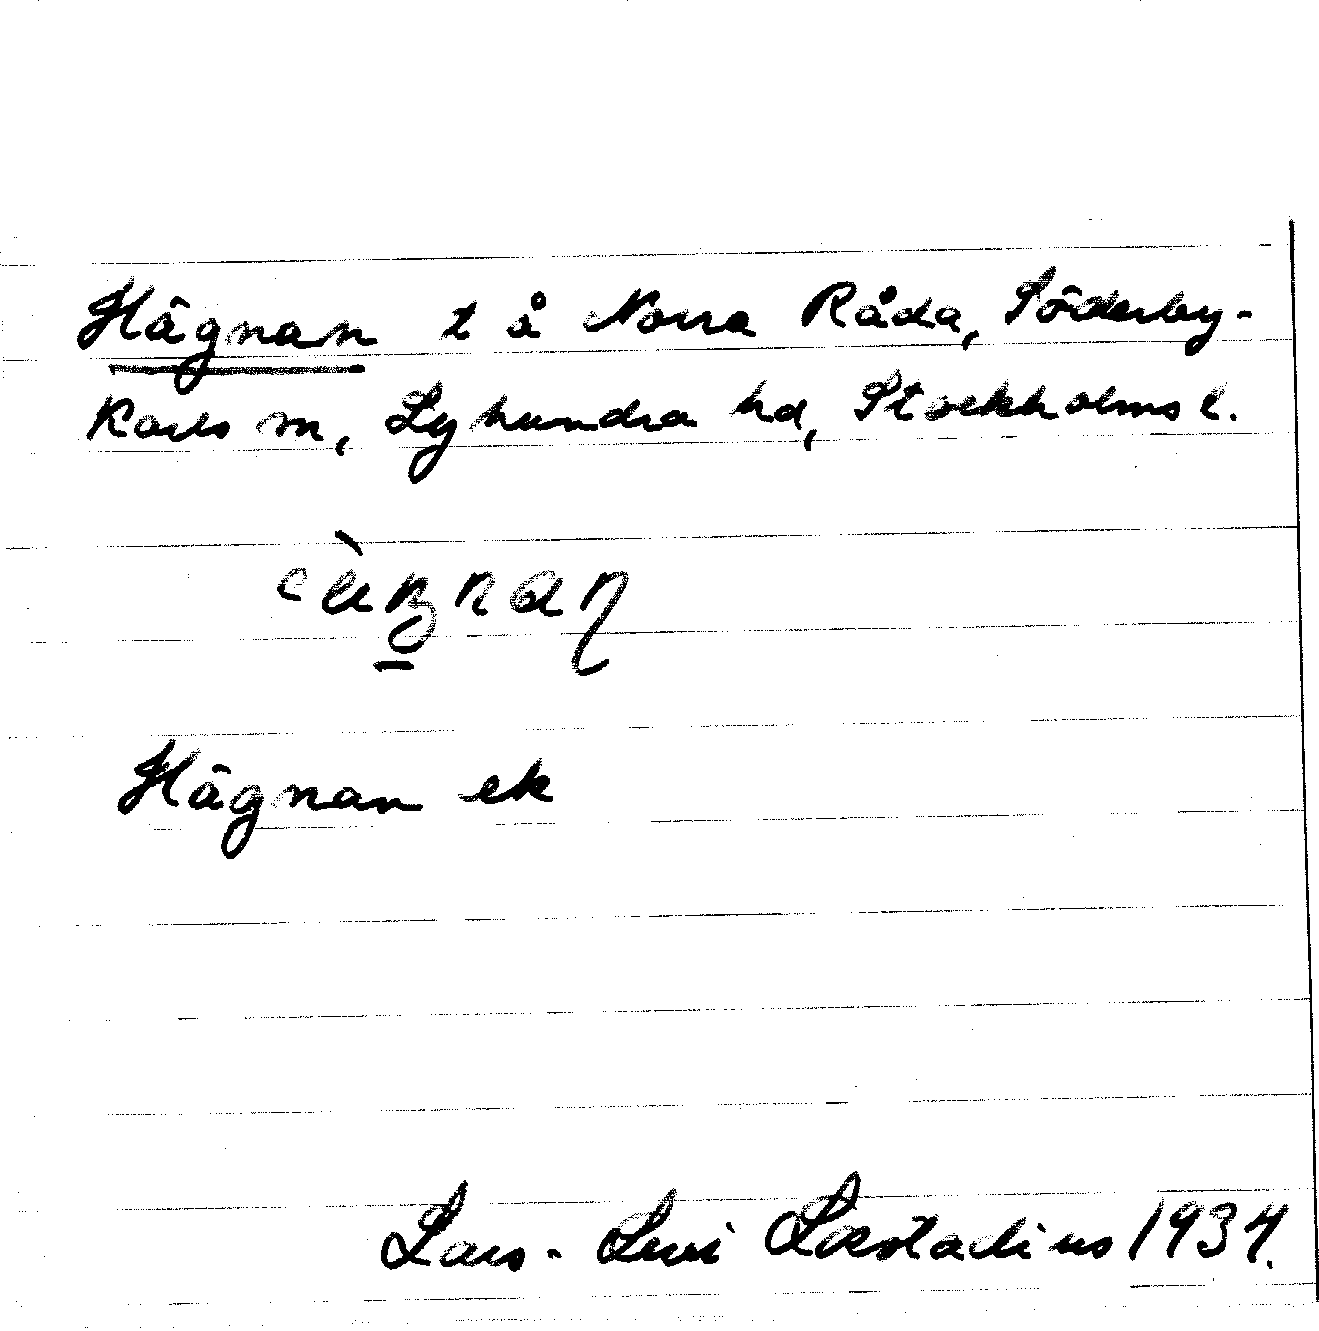 Hägnan t å Norra Råda, Söderby-
Karls sn, Lyhundra hd, Stockholms l.
Hägnan ek
Lars-Levi Læstadius 1934.